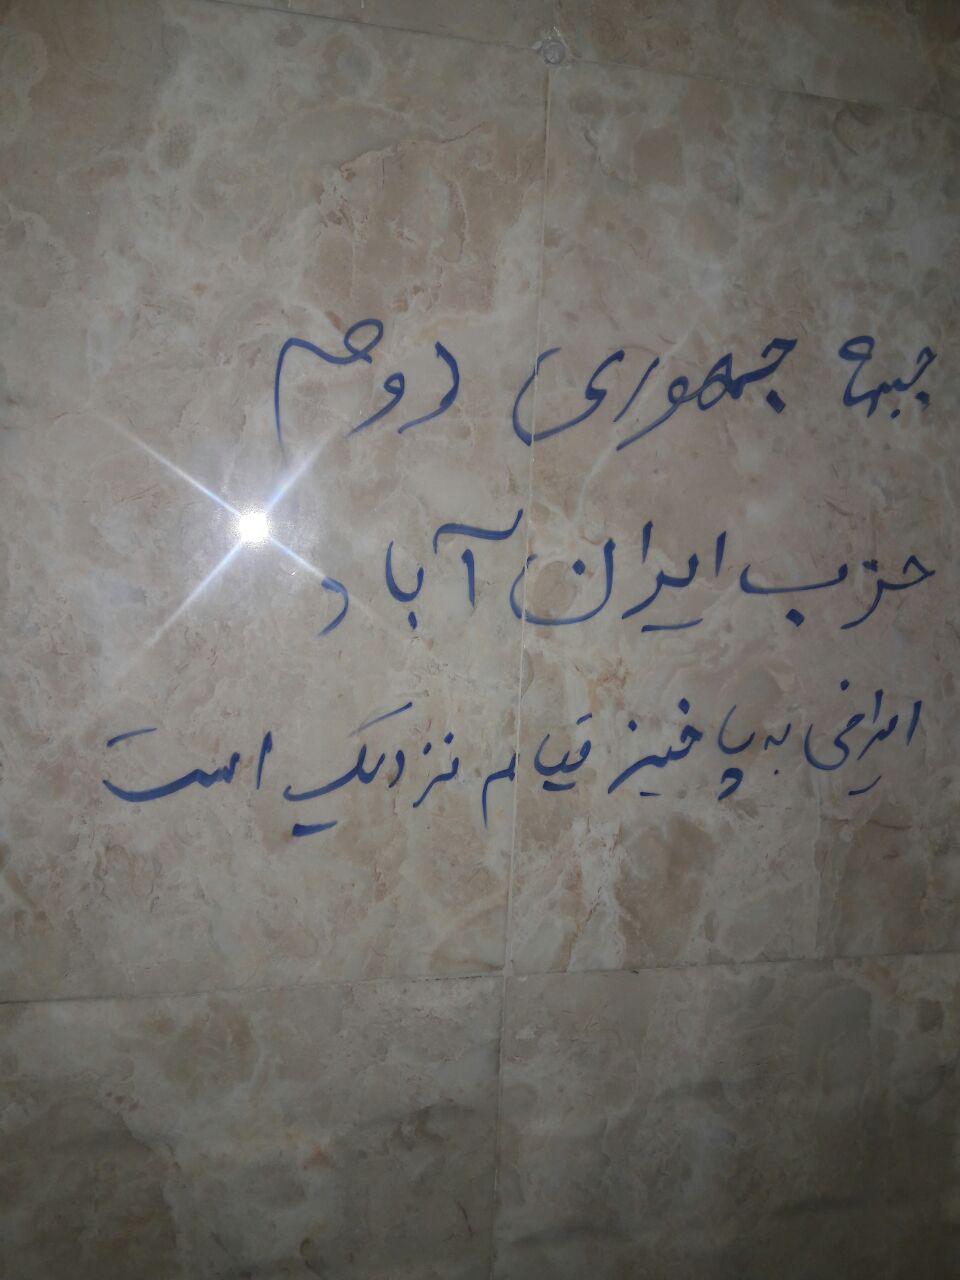 جبهه جمهوری دوم
حزب ایران آباد
ایرانی به پا خیز قیام نزدیک است